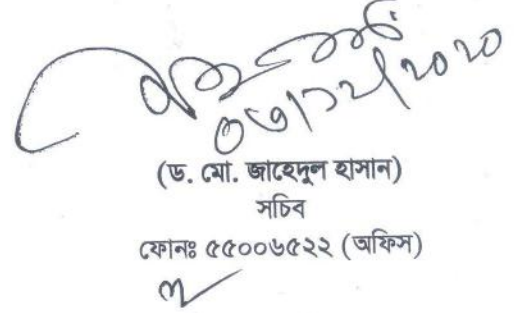 ০৩/১২/২০২০
(ড. মো. জাহেদুল হাসান)
সচিব
ফোনঃ ৫৫০০৬৫২২ (অফিস)